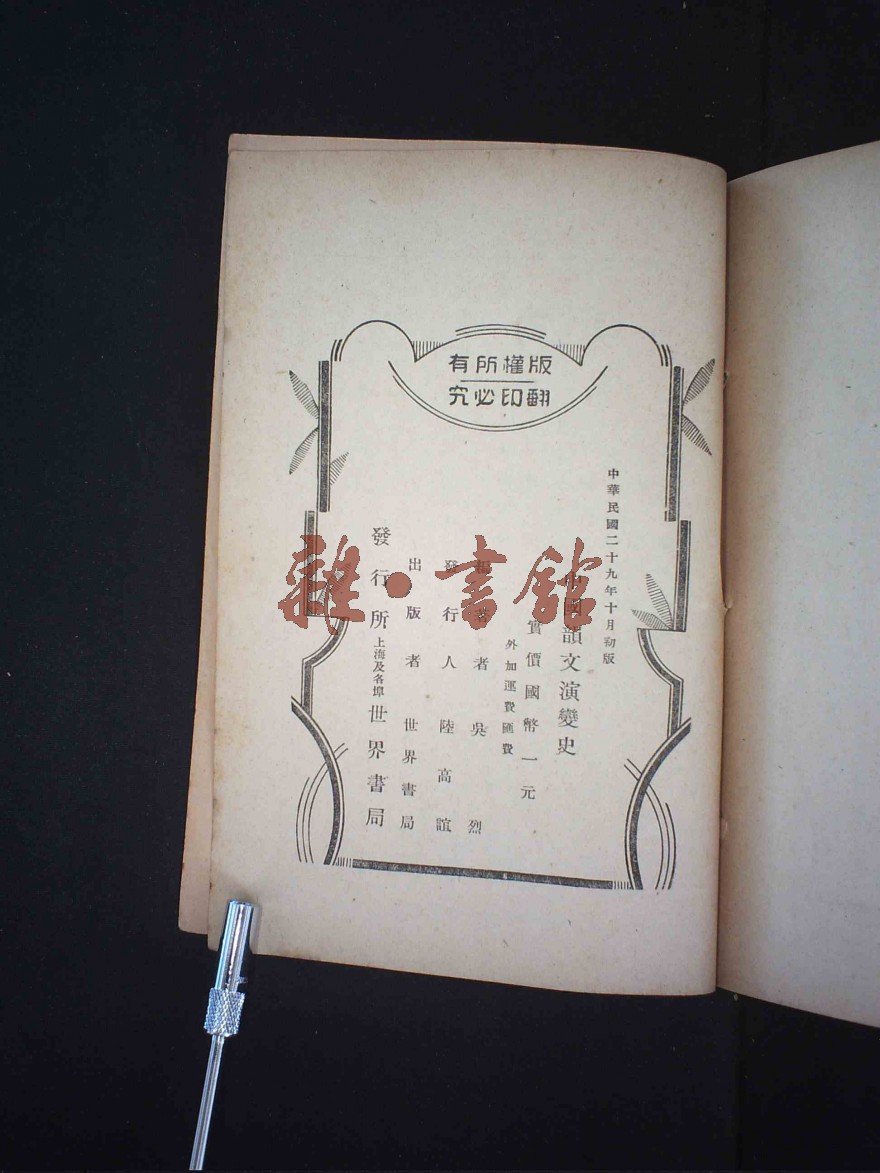 版權所有
翻印必究
中華民國二十九年十月初版
中國韻文演變史
實價國幣一元
外加運費匯費
編著者 吳烈
發行人 陸高誼
出版者 世界書局
發行所 上海及各埠 世界書局
雜·書館